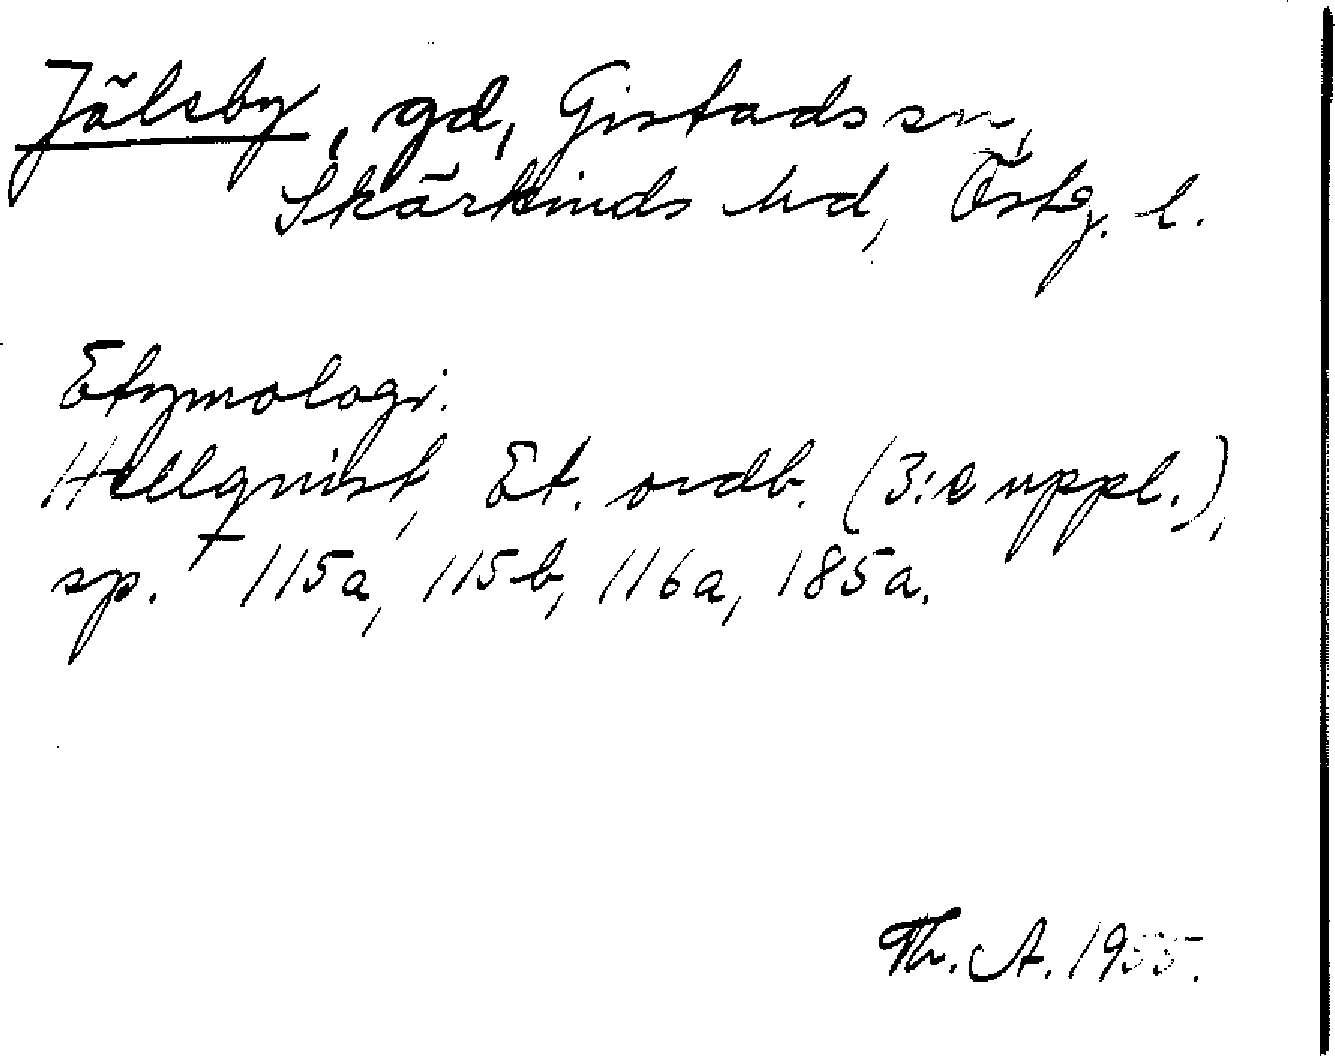 Jälsby, gd, Gistads sn,
Skärkinds hd, Östg. l.
Etymologi.
Hellquist, Et. ordb. (3:e uppl.),
sp. 115a, 115b, 116a, 185a.
Th. A. 1955.